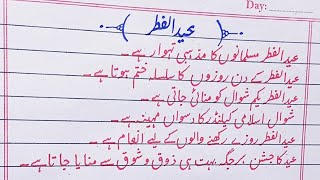 Day:
عید الفطر
عید الفطر مسلمانوں کا مذہبی تہوار ہے۔
عید الفطر کے دن روزوں کا سلسلہ ختم ہوتا ہے۔
عید الفطر یکم شوال کو منائی جاتی ہے۔
شوال اسلامی کیلنڈر کا دسواں مہینہ ہے۔
عید الفطر روزے رکھنے والوں کے لیے انعام ہے۔
عید کا جشن ہر جگہ بہت ہی ذوق و شوق سے منایا جاتا ہے۔